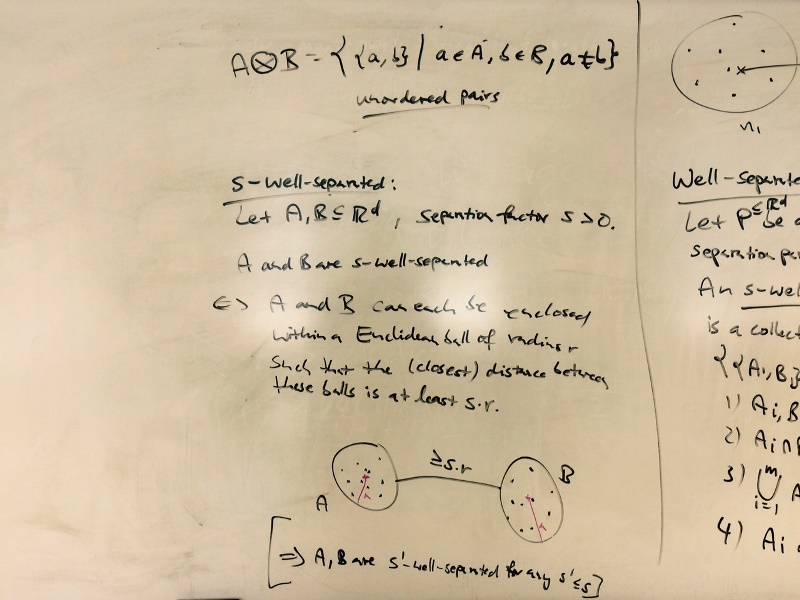 A⊗B = { {a,b} | a ∈ A, b ∈ B, a ≠ b }
unordered pairs
s-well-separated:
Let A, B ⊆ ℝᵈ, separation factor s > 0.
A and B are s-well-separated
⇔ A and B can each be enclosed
within a Euclidean ball of radius r
such that the (closest) distance between
these balls is at least s·r.
≥ s·r
A
B
r
r
[⇒ A, B are s'-well-separated for any s' ≤ s]
n₁
Well-separate
Let P ⊆ ℝᵈ be a
separation pa
An s-wel
is a collect
{ {Aᵢ, Bᵢ}
1) Aᵢ, B
2) Aᵢ ∩ B
3) ⋃ᵢ₌₁ᵐ A
4) Aᵢ